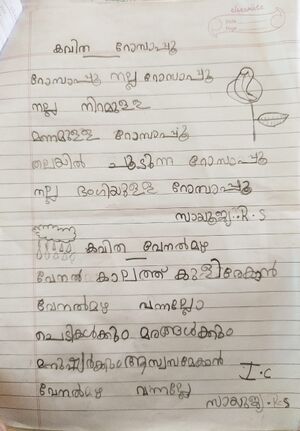 classmate
Date
Page
കവിത റോസാപ്പൂ
റോസാപ്പൂ നല്ല റോസാപ്പൂ
നല്ല നിറമുള്ള
മണമുള്ള റോസാപ്പൂ
തലയിൽ ചൂടുന്ന റോസാപ്പൂ
നല്ല ഭംഗിയുള്ള റോസാപ്പൂ
സായൂജ്യ.K.S
കവിത വേനൽമഴ
വേനൽ കാലത്ത് കുളിരേകാൻ
വേനൽമഴ വന്നല്ലോ
ചെടികൾക്കും മരങ്ങൾക്കും
മനുഷ്യർക്കും ആശ്വാസമേകാൻ
വേനൽമഴ വന്നല്ലോ
I.C
സായൂജ്യ.K.S